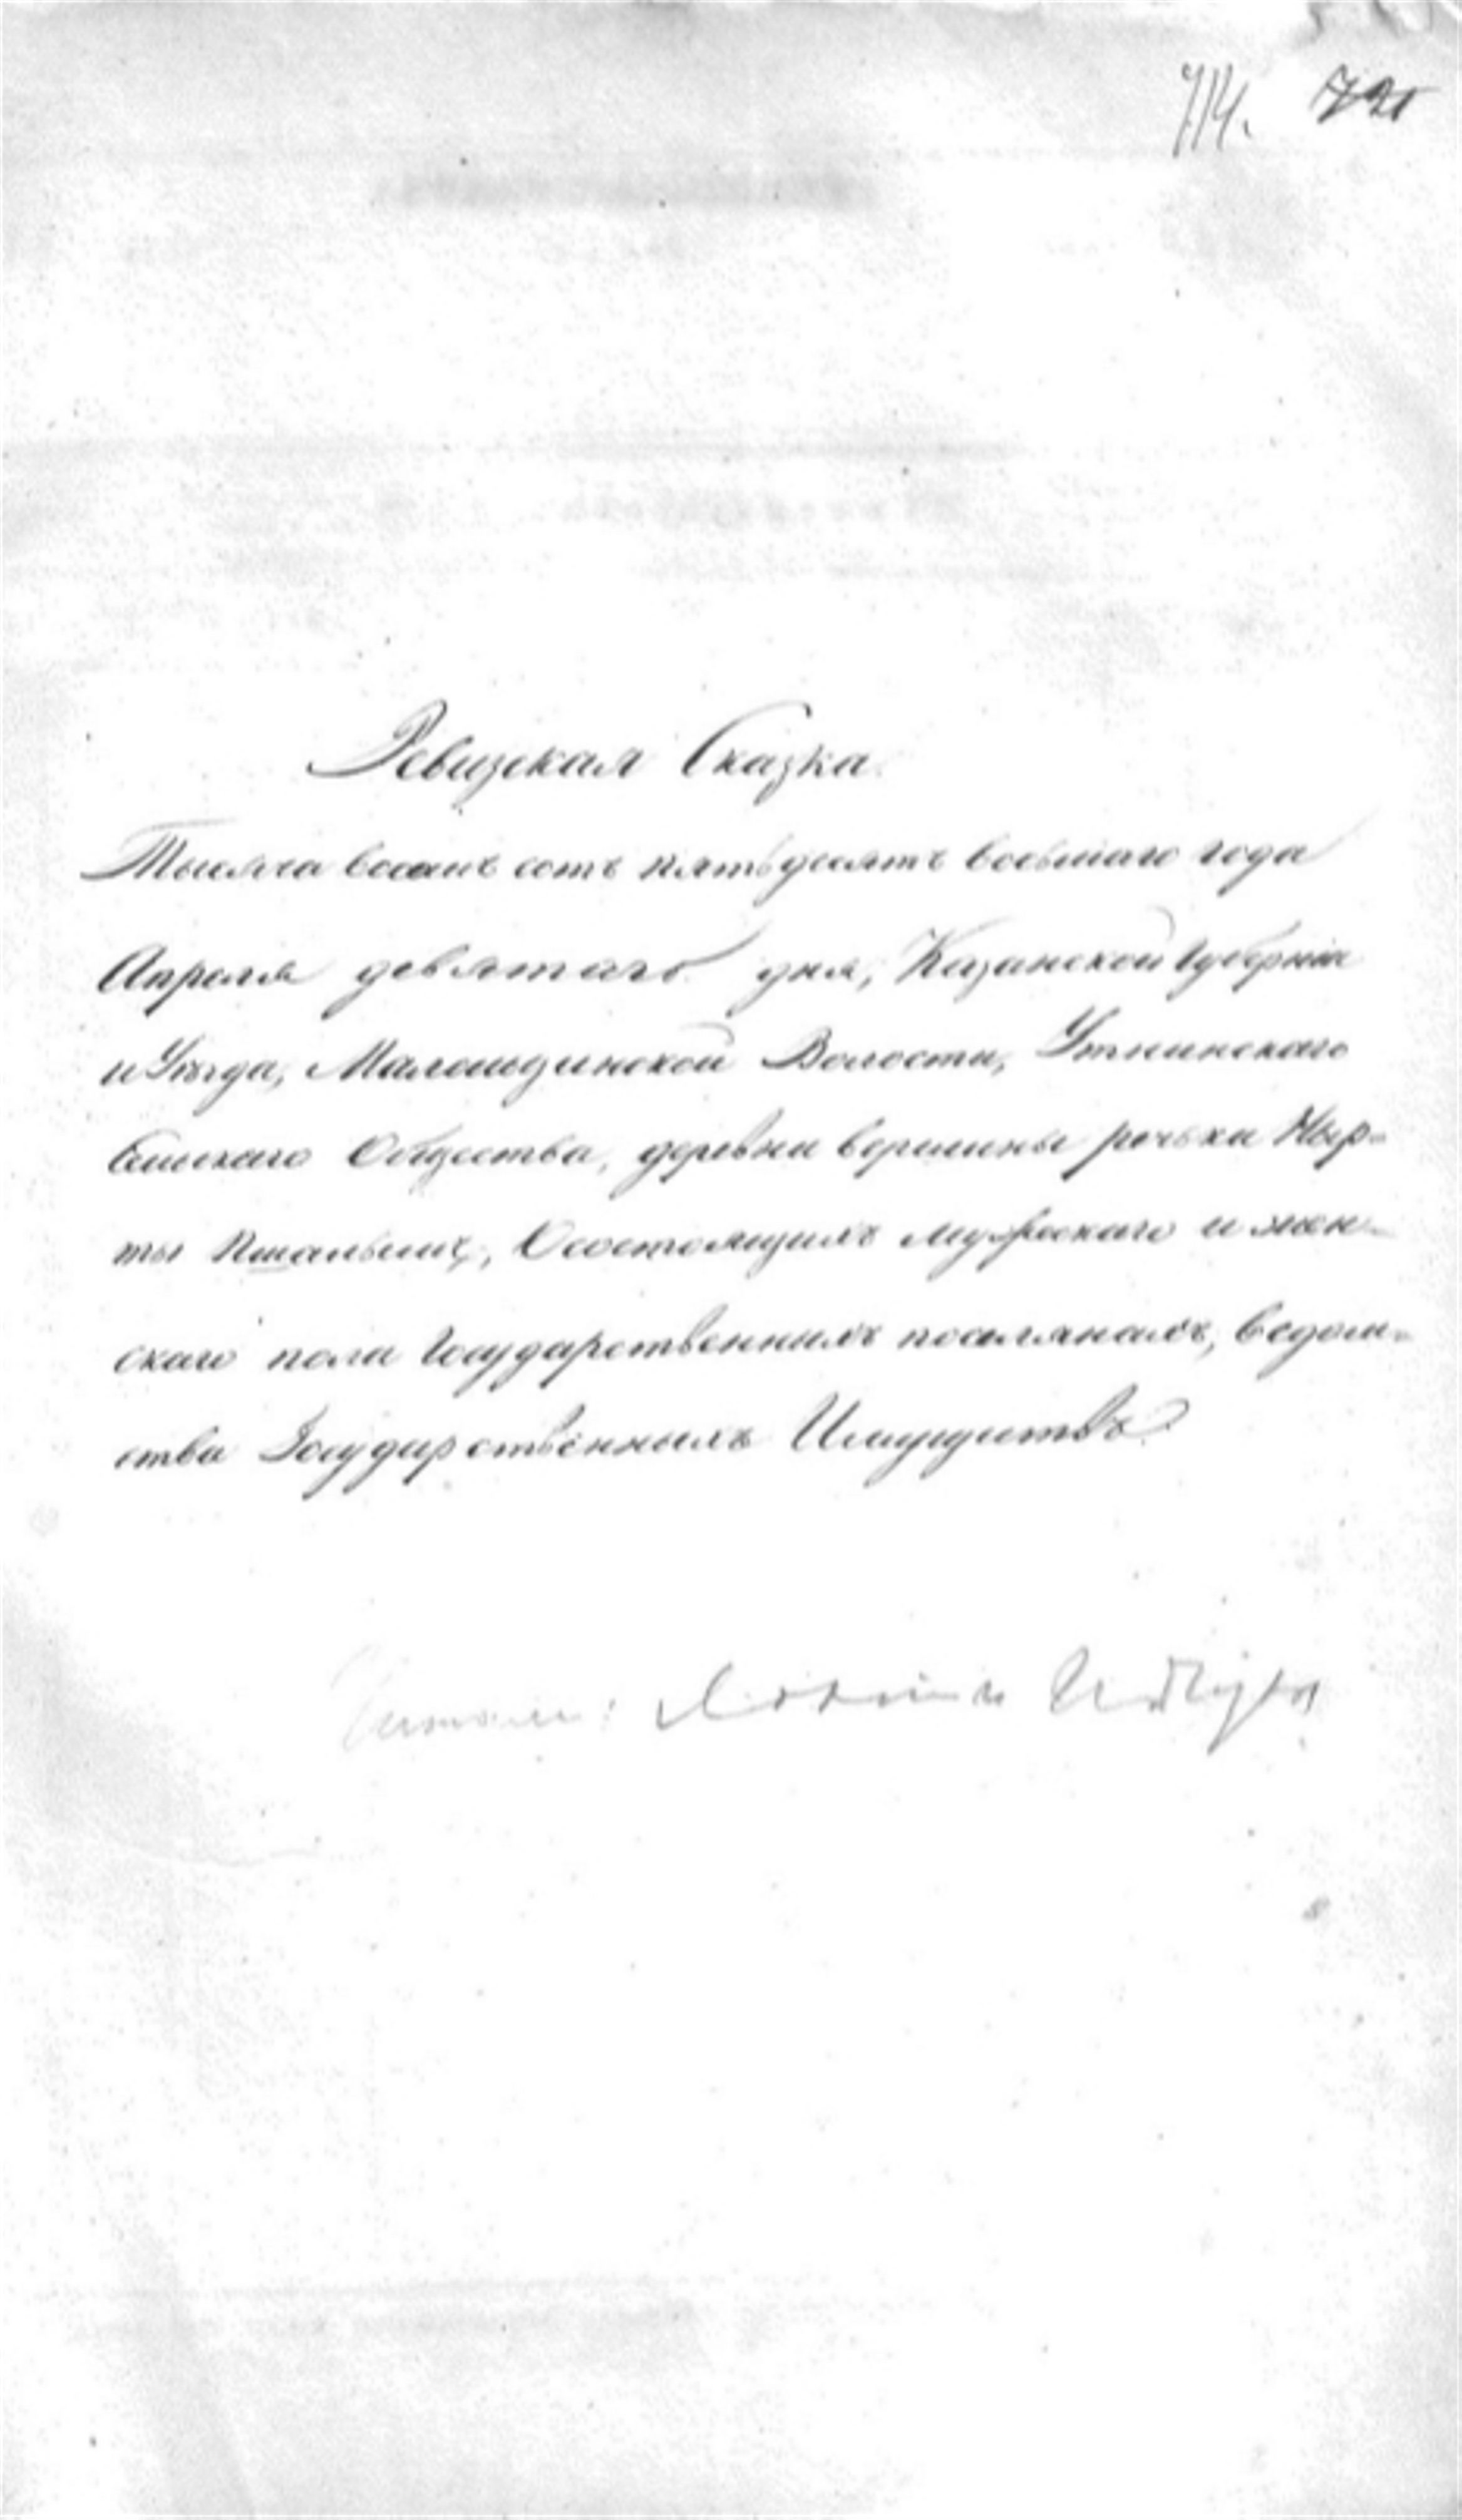 714. 720
Ревизская Сказка
Тысяча восемь сотъ пятьдесятъ восьмаго года
Апреля девятаго дня, Казанской Губерніи
и Уезда, Малошдинской Волости, Утнинскаго
Сельскаго Общества, деревни вершины речьки Ныр-
ты, Осостоящихъ мужескаго и жен-
скаго пола Государственныхъ поселянахъ, ведом-
ства Государственныхъ Имуществъ